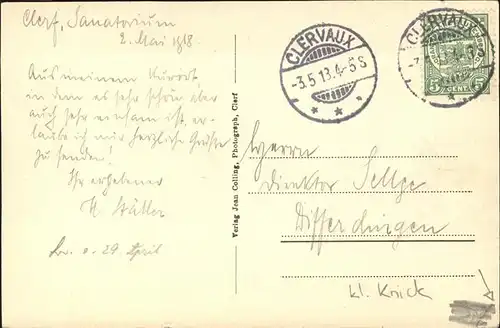 Clerf, Sanatorium
2. Mai 1918.
Aus meinem Kurort
in dem es sehr schön, aber
auch sehr einsam ist, er-
laube ich mir herzliche Grüße
zu senden!
Ihr ergebener
29. April
Verlag Jean Colling, Photograph, Clerf
CLERVAUX
-3.5.13.4-5S
CLERVAUX
5 CENT. 5
Herrn
Direktor
Differdingen
kl. Knick